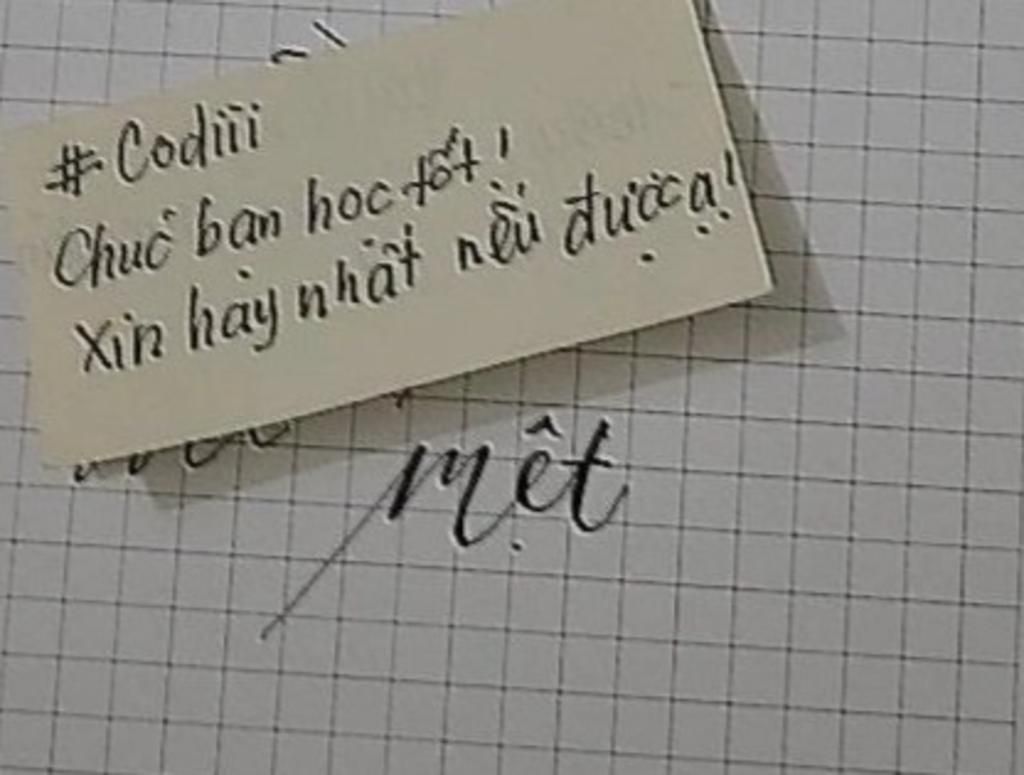 #Codiii
Chuć bạn học tốt!
Xin hảy nhất nếu được ạ!
mệt